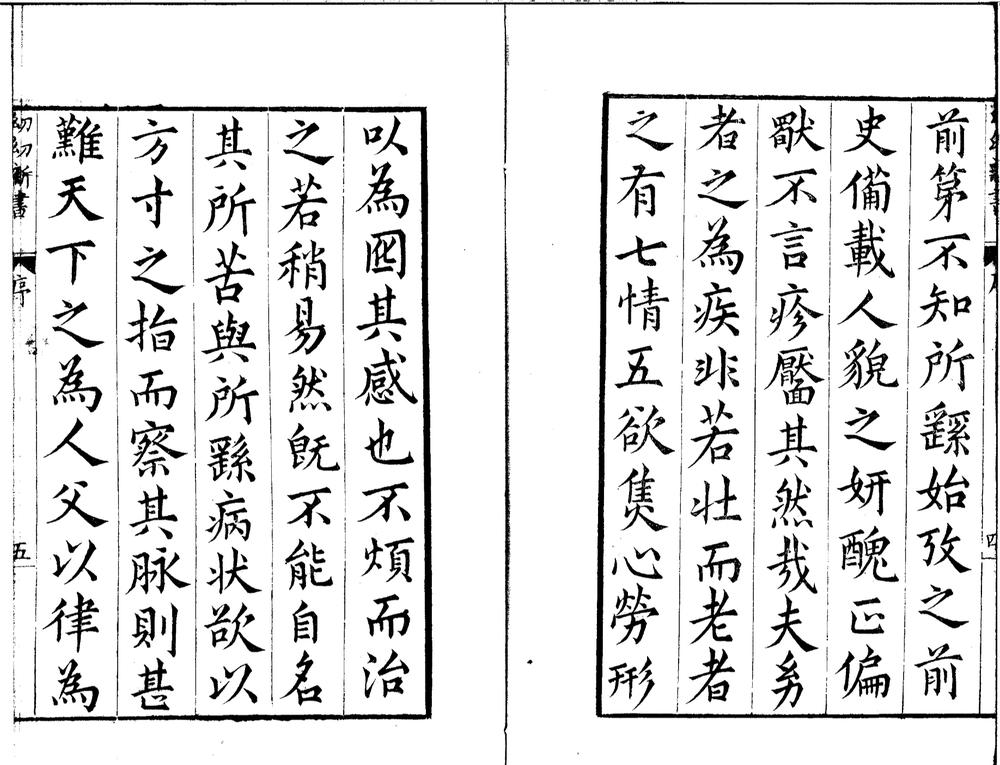 幼幼新書
序
四
前第不知所繇始攷之前
史備載人貌之妍醜正偏
獨不言疹靨其然哉夫幼
者之為疾非若壯而老者
之有七情五欲焦心勞形
以為其感也不煩而治
之若稍易然旣不能自名
其所苦與所繇病狀欲以
方寸之指而察其脉則甚
難天下之為人父以律為
幼幼新書
序
五